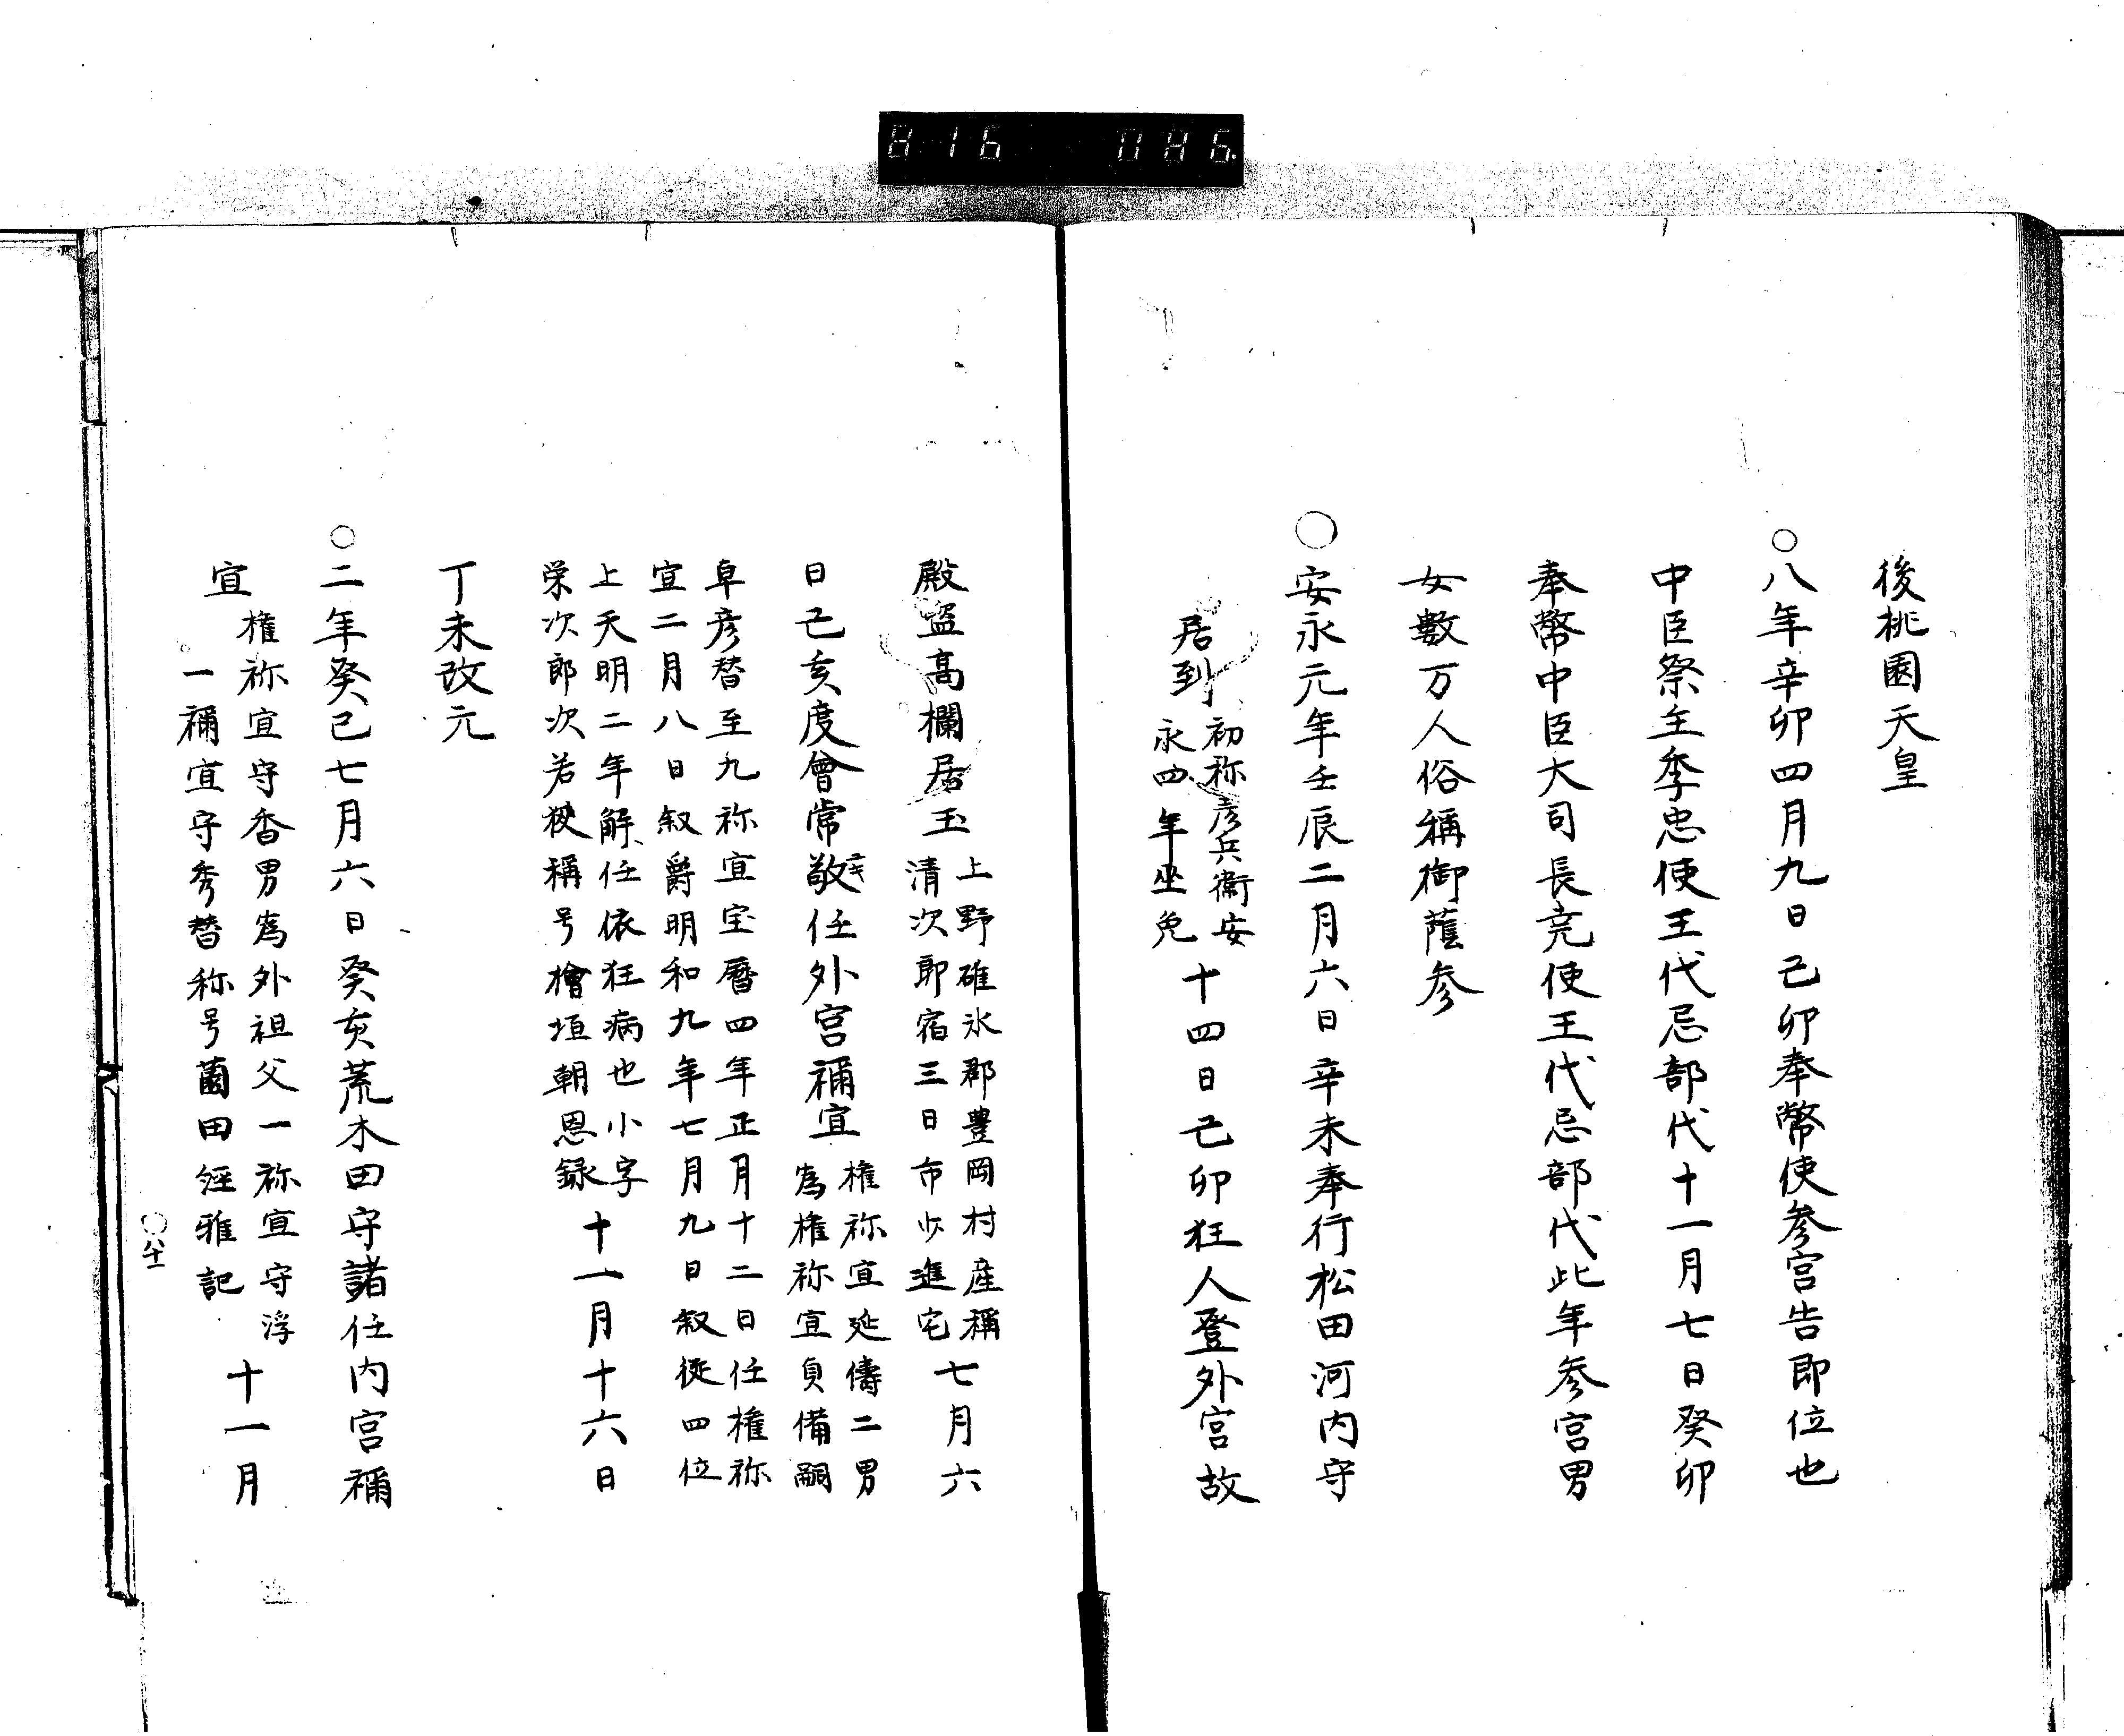 816 086
後桃園天皇
○八年辛卯四月九日己卯奉幣使参宮告即位也
中臣祭主季忠使王代忌部代十一月七日癸卯
奉幣中臣大司長尭使王代忌部代此年参宮男
女數万人俗稱御蔭参
○安永元年壬辰二月六日辛未奉行松田河内守
居到
初称彦兵衞安
永四年坐免
十四日己卯狂人登外宮故
殿盗高欄居玉
上野碓氷郡豊岡村産稱
清次郎宿三日市少進宅
七月六
日己亥度會常敬任外宮禰宜
権祢宜延儔二男
為権祢宜貞備嗣
阜彦替至九祢宜宝暦四年正月十二日任権祢
宜二月八日叙爵明和九年七月九日叙従四位
上天明二年解任依狂病也小字
栄次郎次若狭稱号檜垣朝恩録
十一月十六日
丁未改元
○二年癸巳七月六日癸亥荒木田守諸任内宮禰
宜
権祢宜守香男為外祖父一祢宜守浮
一禰宜守秀替称号薗田経雅記
十一月